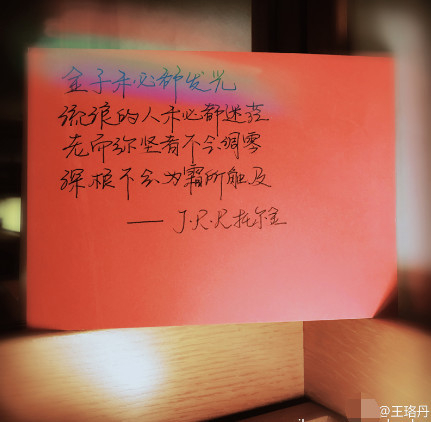 金子未必都发光
流浪的人未必都迷茫
老而弥坚者不会凋零
深根不会为霜所触及
—— J.R.R托尔金
@王珞丹